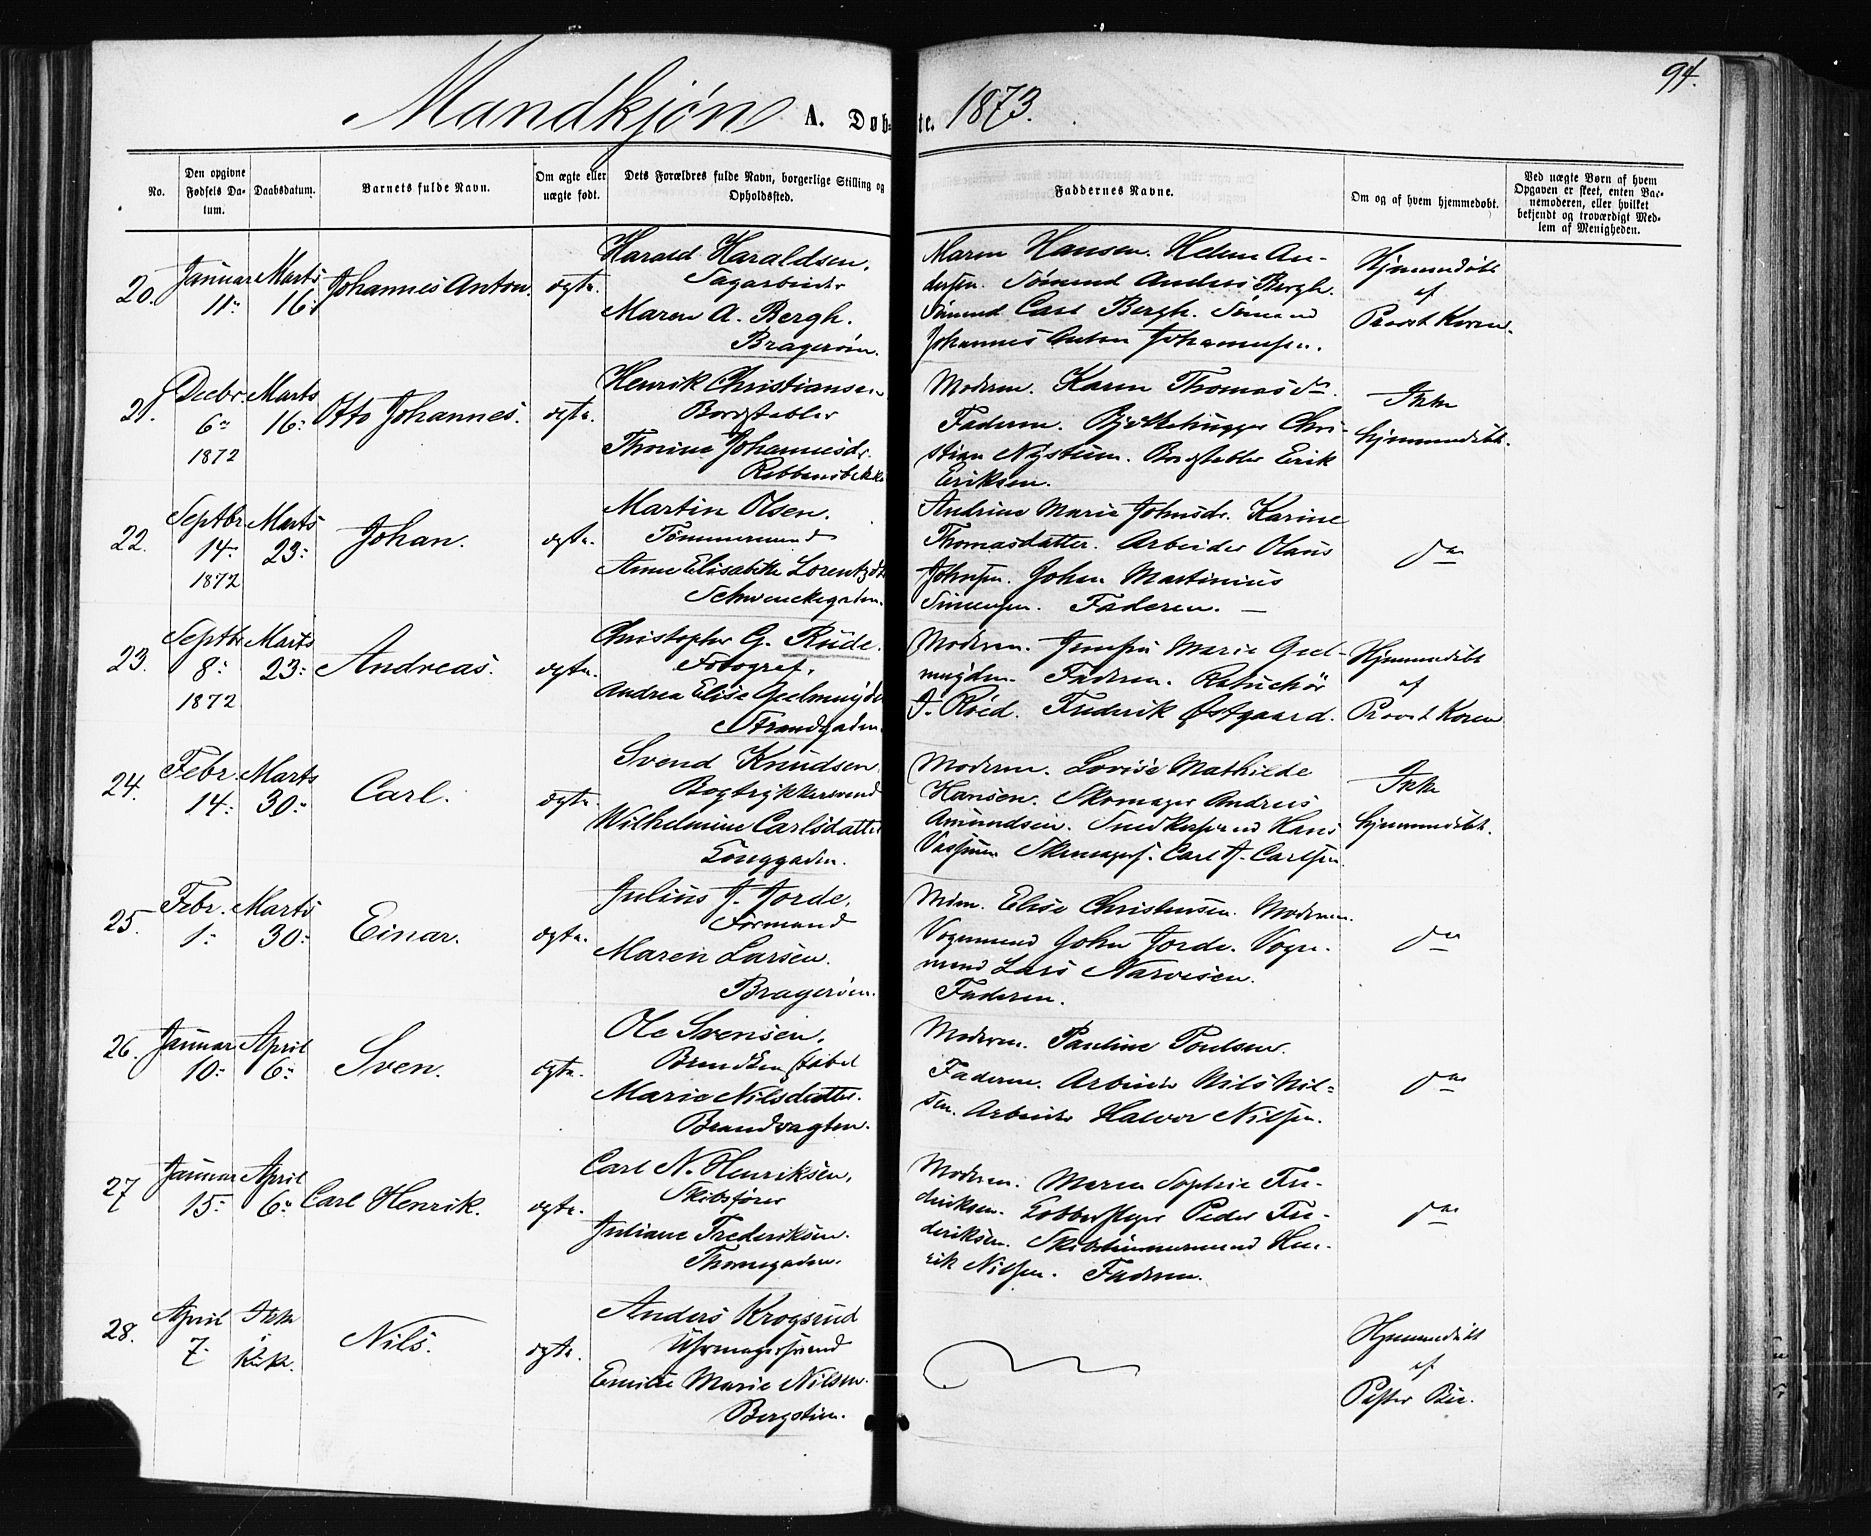 Mandkjøn A. Døbte. 1873.
94.
No.
Den opgivne Fødsels Datum.
Daabsdatum.
Barnets fulde Navn.
Om ægte eller uægte født.
Dets Forældres fulde Navn, borgerlige Stilling og Opholdssted.
Faddernes Navne.
Om og af hvem hjemmedøbt.
Ved uægte Børn af hvem Opgaven er skeet, enten Barnemoderen, eller hvilket bekjendt og troværdigt Medlem af Menigheden.
20.
Januar
11
Marts
16
Johannes Anton.
ægte.
Harald Haraldsen.
Sagarbeider
Maren A. Bergh.
Bragerøen.
Maren Hansen. Helene An-
dersen. Sømand Anders Bergh.
Sømand Carl Bergh. Sømand
Johannes Anton Johannesen.
Hjemmedøbt
af
Provst Koren.
21.
Decbr.
6
1872
Marts
16
Otto Johannes.
ægte.
Henrik Christiansen
Bordstabler
Thorine Johannesdr.
Moderen. Karen Thomasdr.
Faderen. Bjelkehugger Chri-
stian Nystuen. Bordstabler Erik
Eriksen.
Ikke
hjemmedøbt.
22.
Septbr
14
1872
Marts
23
Johan.
ægte.
Martin Olsen.
Tømmermand
Anne Elisabeth Lorentzdr
Schwenckegaden.
Andrine Marie Johnsdr. Karine
Thomasdatter. Arbeider Olaus
Johnsen. Johan Martinius
Simensen. Faderen. —
do
23.
Septbr
8
1872
Marts
23
Andreas.
ægte.
Christopher G. Rude.
Fotograf.
Andrea Elise Geelmuyden
Strandgaden.
Moderen. Marie Geel-
muyden. Faderen.
J. Röed. Frederik Østgaard.
Hjemmedøbt
af
Provst Koren
24.
Febr.
14
Marts
30
Carl.
ægte.
Svend Knudsen
Bogtrykkersvend
Wilhelmine Carlsdatter
Konggaden.
Moderen. Lovise Mathilde
Hansen. Skomager Andreas
Amundsen. Snedkersvend Hans
Skomagers. Carl J. Carlsen.
Ikke
hjemmedøbt.
25.
Febr.
1
Marts
30
Einar.
ægte.
Julius J. Jorde.
Formand
Maren Larsen.
Bragerøen.
Mdm. Elise Christensen. Moderen.
Vognmand John Jorde. Vogn-
mand Lars Narvesen.
Faderen.
do
26.
Januar
10
April
6
Sven.
ægte.
Ole Svensen.
Brandkonstabel
Marie Nilsdatter.
Brandvagten.
Moderen. Pauline Poulsen.
Faderen. Arbeider Nils Nil-
sen. Arbeider Halvor Nilsen.
do
27
Januar
15
April
6
Carl Henrik.
ægte.
Carl N. Henriksen.
Skibsfører
Juliane Frederiksen.
Thornegaden.
Moderen. Maren Sophie Fre-
deriksen. Kobberslager Peder Fre-
deriksen. Skibstømmermand Hen-
rik Nilsen. Faderen.
do
28.
April
7
Ikke
i
Kirke.
Nils.
ægte.
Anders Krogsrud
Uhrmagersvend
Emilie Marie Nilsen.
Bergstien.
Hjemmedøbt
af
Pastor Bie.